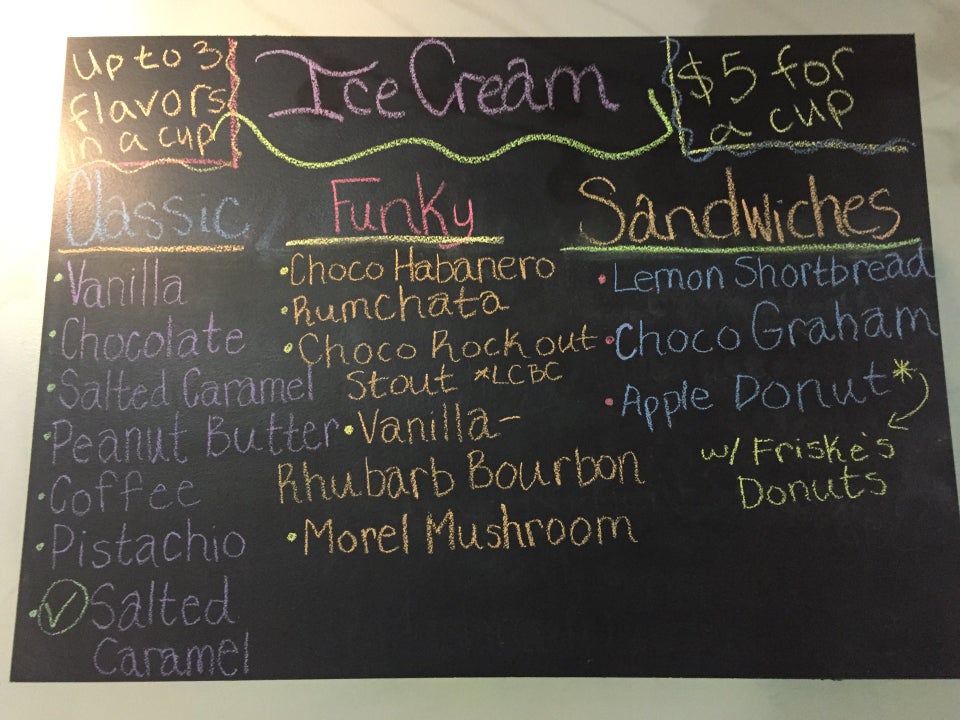 Up to 3
flavors
in a cup
Ice Cream
$5 for
a cup
Classic
• Vanilla
• Chocolate
• Salted Caramel
• Peanut Butter
• Coffee
• Pistachio
• ✓ Salted
Caramel
Funky
• Choco Habanero
• Rumchata
• Choco Rockout
Stout *LCBC
• Vanilla-
Rhubarb Bourbon
• Morel Mushroom
Sandwiches
• Lemon Shortbread
• Choco Graham
• Apple Donut*
w/ Friske's
Donuts